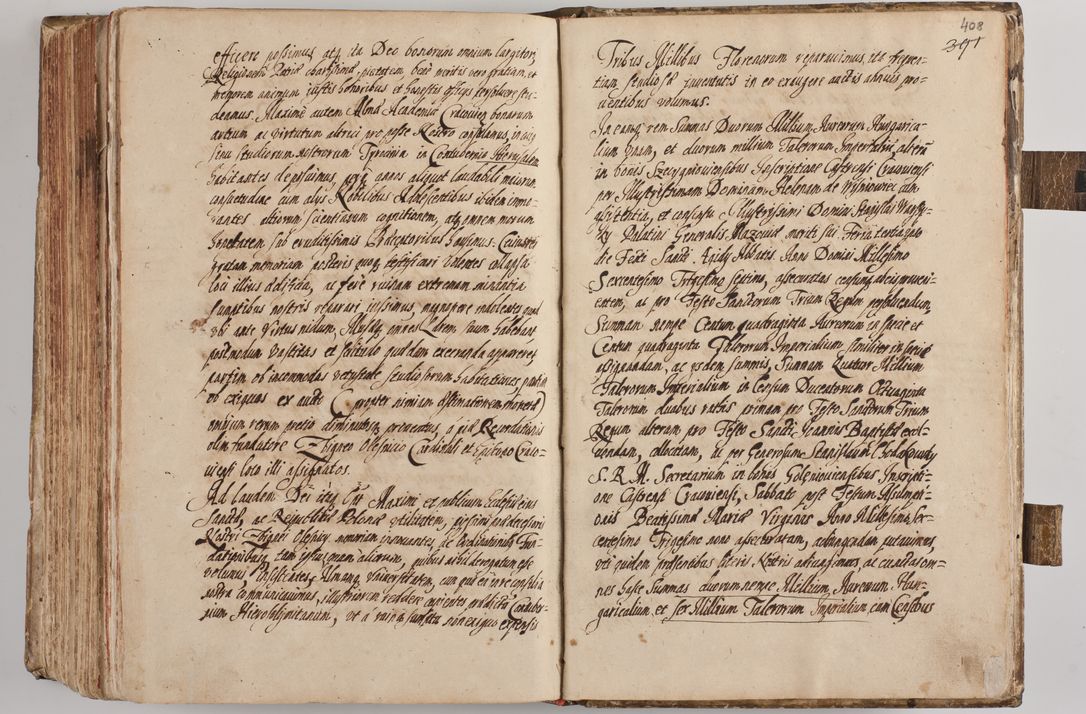 efficere possimus, atq ita Deo bonorum omnium largitori,
Religionem Patriæ charissimæ pietatem, bene meritis vero gratiam, et
memorem animum iustis honoribus et honestis officijs persolvere stu-
deamus. Maxime autem Almæ Academiæ Cracovien bonarum
artium ac virtutum altrici pro posse Nostro consulamus, in cuius
sinu studiorum nostrorum Tyrocinia in Contubernio Hierusalem
habitantes deposuimus annos aliquot laudabili maiorum
consuetudine cum alijs Nobilibus Adolescentibus ibidem immo-
rantes altiorum scientiarum cognitionem, atq omnem morum
honestatem sub eruditissimis Præceptoribus hausimus.
gratam memoriam posteris quoq testificari volentes collapsa
loca illius ac fere ruinam extremam minantia
sumptibus nostris reparari iussimus,
ubi ante Virtus nidum, omnes Larem suum habebant,
postmodum vastitas et solitudo quædam execranda appareret,
partim ob incommodas vetustate studiosorum habitationes, partim
ob exiguos ex aucto (propter nimiam æstimationem monetæ)
omnium rerum pretio diminutosq proventus, a piæ Recordationis
olim fundatore Zbigneo Olesnicio Cardinali et Episcopo Craco-
viensi loco illi assignatos.
Ad laudem Dei itaq Opt Maximi et publicum Ecclesiæ eius
Sanctæ, ac Reipublicæ Polonæ utilitatem, prædecessoris
Nostri Zbignei Olesnicy memoriam ac Fun-
dationibusq tam ipsius quam aliorum, quibus nihil derogatum esse
volumus insistentes, Almamq Universitatem, cum qua ea in re consilia
nostra communicavimus, illustriorem reddere cupientes prædicto Contuber-
nium Hierosolymitanum, ut a ruina sumptu non exiguo expensis

408
391
Tribus Millibus Florenorum reparavimus, ita frequen-
tiam studiosæ juventutis in eo exaugere auctis alumnis pro-
ventibus volumus.
In eamq rem Summas Duorum Millium Aureorum Hungarica-
lium unam, et duorum millium Talerorum Imperialium, alteram
in bonis Szczyglovicensibus Inscriptione Castrensi Cracoviensi
per Illustrissimam Dominam Helenam de Wisniowiec cum
assistentia, et consensu Illustrissimi Domini Stanislai Warszy-
cky Palatini Generalis Mazoviæ mariti sui Feria tertia post
die Festi Sancti Ægidij Abbatis Anno Domini Millesimo
Sexcentesimo Trigesimo septimo, assecuratas censumq ab eis proveni-
entem, ac pro Festo Sanctorum Trium Regum persolvendum,
Summam nempe Centum quadraginta Aureorum in specie et
Centum quadraginta Talerorum Imperialium similiter in specie
assignandam, ac ijsdem summis, Summam Quatuor Millium
Talerorum Imperialium in Censum Ducentorum Octuaginta
Talerorum duabus ratis primam pro Festo Sanctorum Trium
Regum alteram pro Festo Sancti Joannis Baptistæ exol-
vendam, collocatam, et per Generosum Stanislaum Chodakowsky
S. R. M. Secretarium in bonis Goleniowiensibus Inscripti-
one Castrensi Cracoviensi, Sabbato post Festum Assumpti-
onis Beatissimæ Mariæ Virginis Anno Millesimo Sex-
centesimo Trigesimo nono assecuratam, adiungendam putavimus,
uti quidem præsentibus literis Nostris adiungimus, ac eiusdem om-
nes hasce Summas duorum nempe Millium Aureorum Hun-
garicalium et sex Millium Talerorum Imperialium cum Censibus